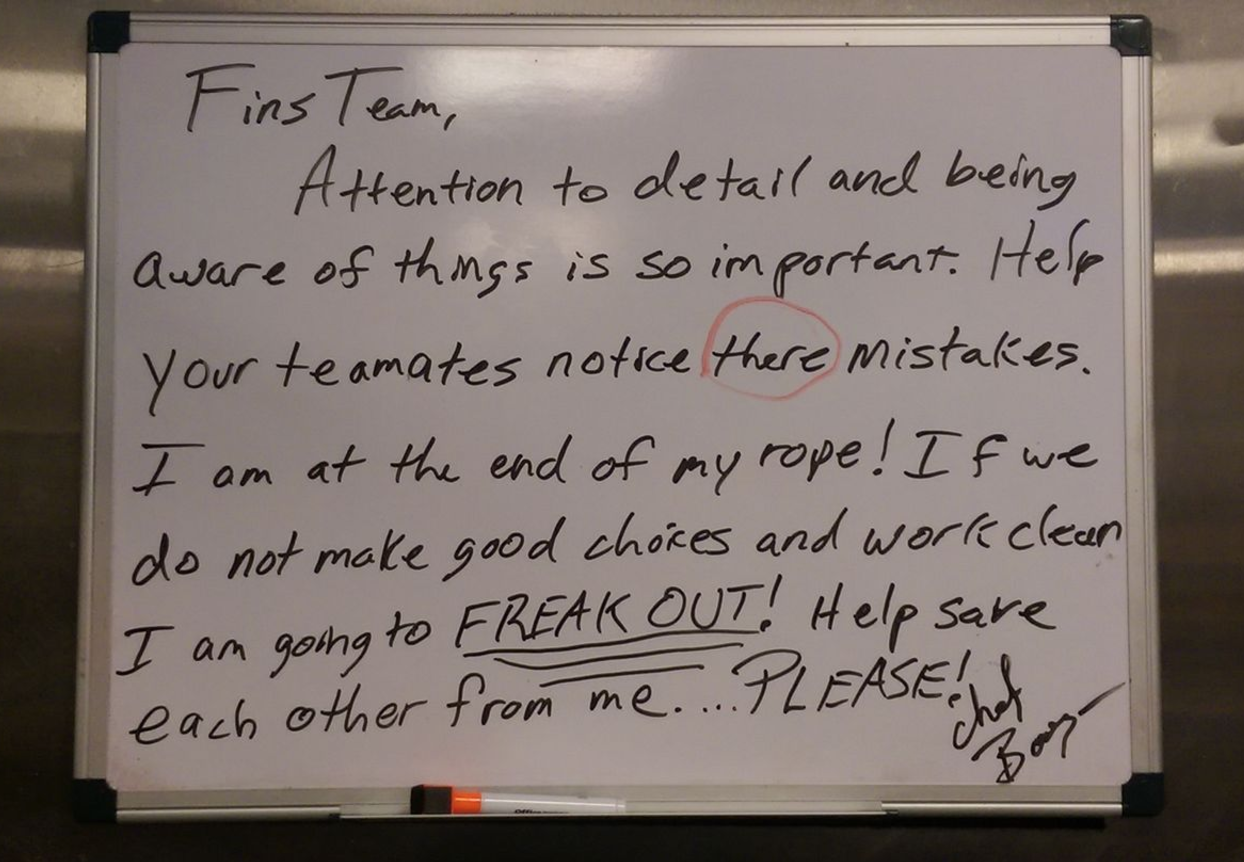 Fins Team,
Attention to detail and being
aware of things is so important. Help
your teamates notice there mistakes.
I am at the end of my rope! If we
do not make good choices and work clean
I am going to FREAK OUT! Help save
each other from me.... PLEASE!
Chef